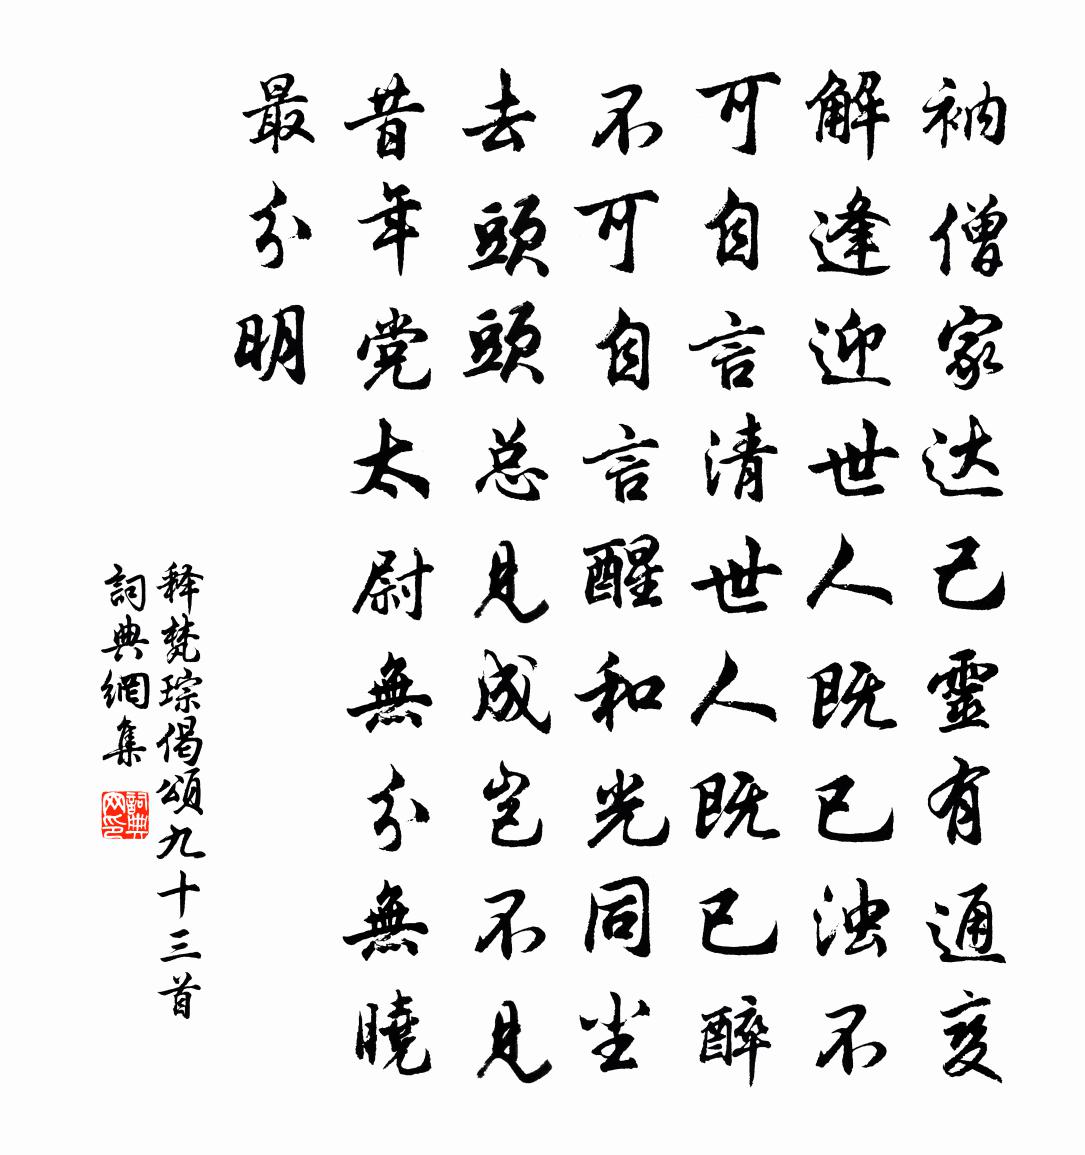 衲僧家达己靈有通变
解逢迎世人既已浊不
可自言清世人既已醉
不可自言醒和光同尘
去頭頭总見成岂不見
昔年党太尉無分無曉
最分明
释梵琮偈頌九十三首
詞典網集
詞典网印